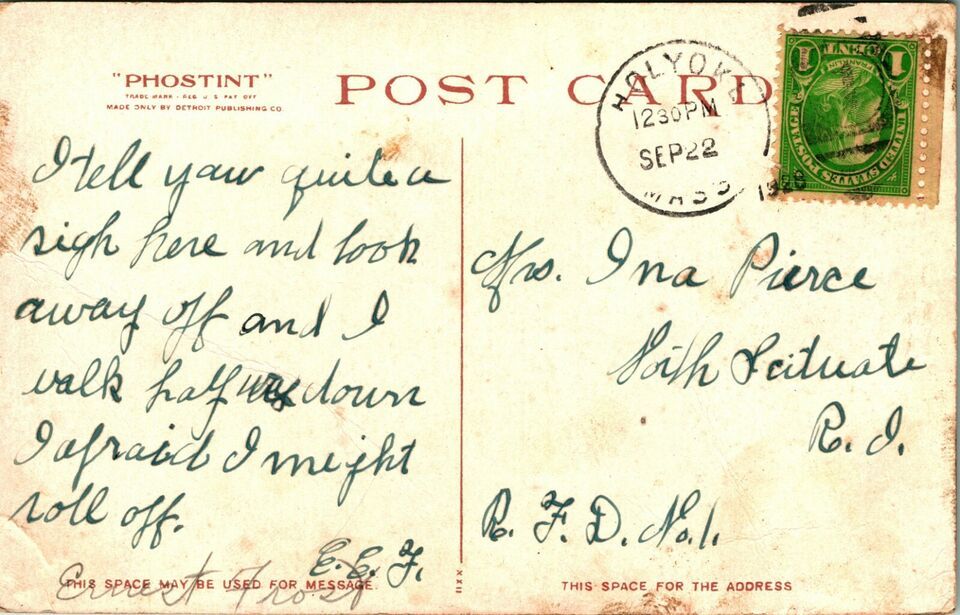 "PHOSTINT"
TRADE MARK - REG U S PAT OFF
MADE ONLY BY DETROIT PUBLISHING CO.
POST CARD
HOLYOKE
1230PM
SEP22
MASS
1 CENT 1
FRANKLIN
UNITED STATES POSTAGE
I tell yaw quite a
sigh here and look
away off and I
walk half way down
I afraid I meight
roll off.
E.E.F.
Ernest Frost
THIS SPACE MAY BE USED FOR MESSAGE.
XXII
Mrs. Ina Pierce
Scituate
R. I.
R. F. D. No.1.
THIS SPACE FOR THE ADDRESS